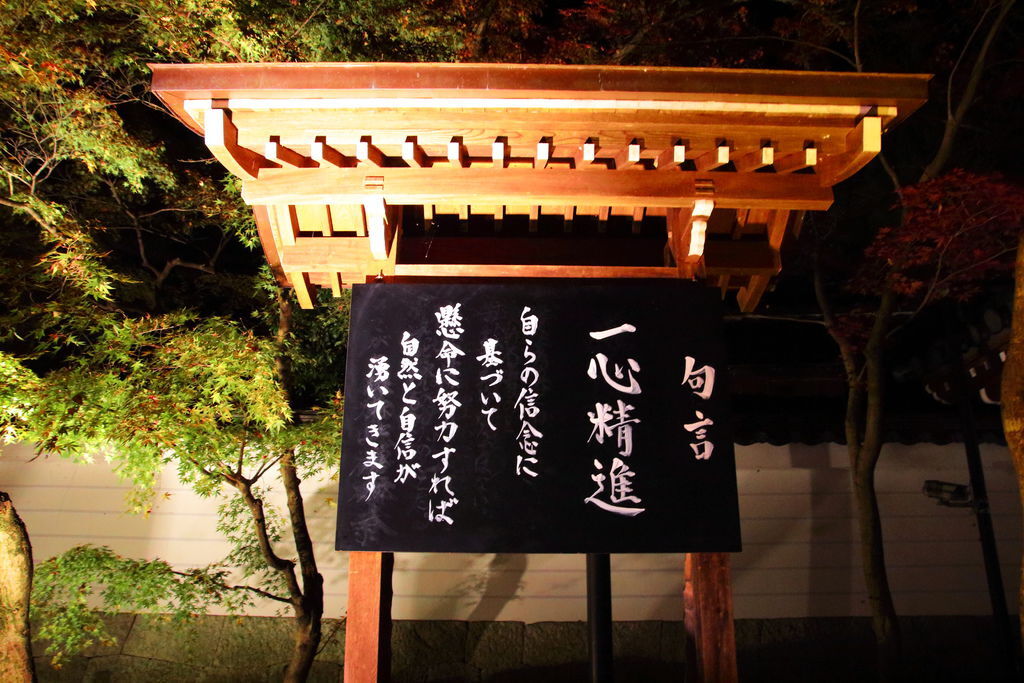 句言
一心精進
自らの信念に
基づいて
懸命に努力すれば
自然と自信が
湧いてきます